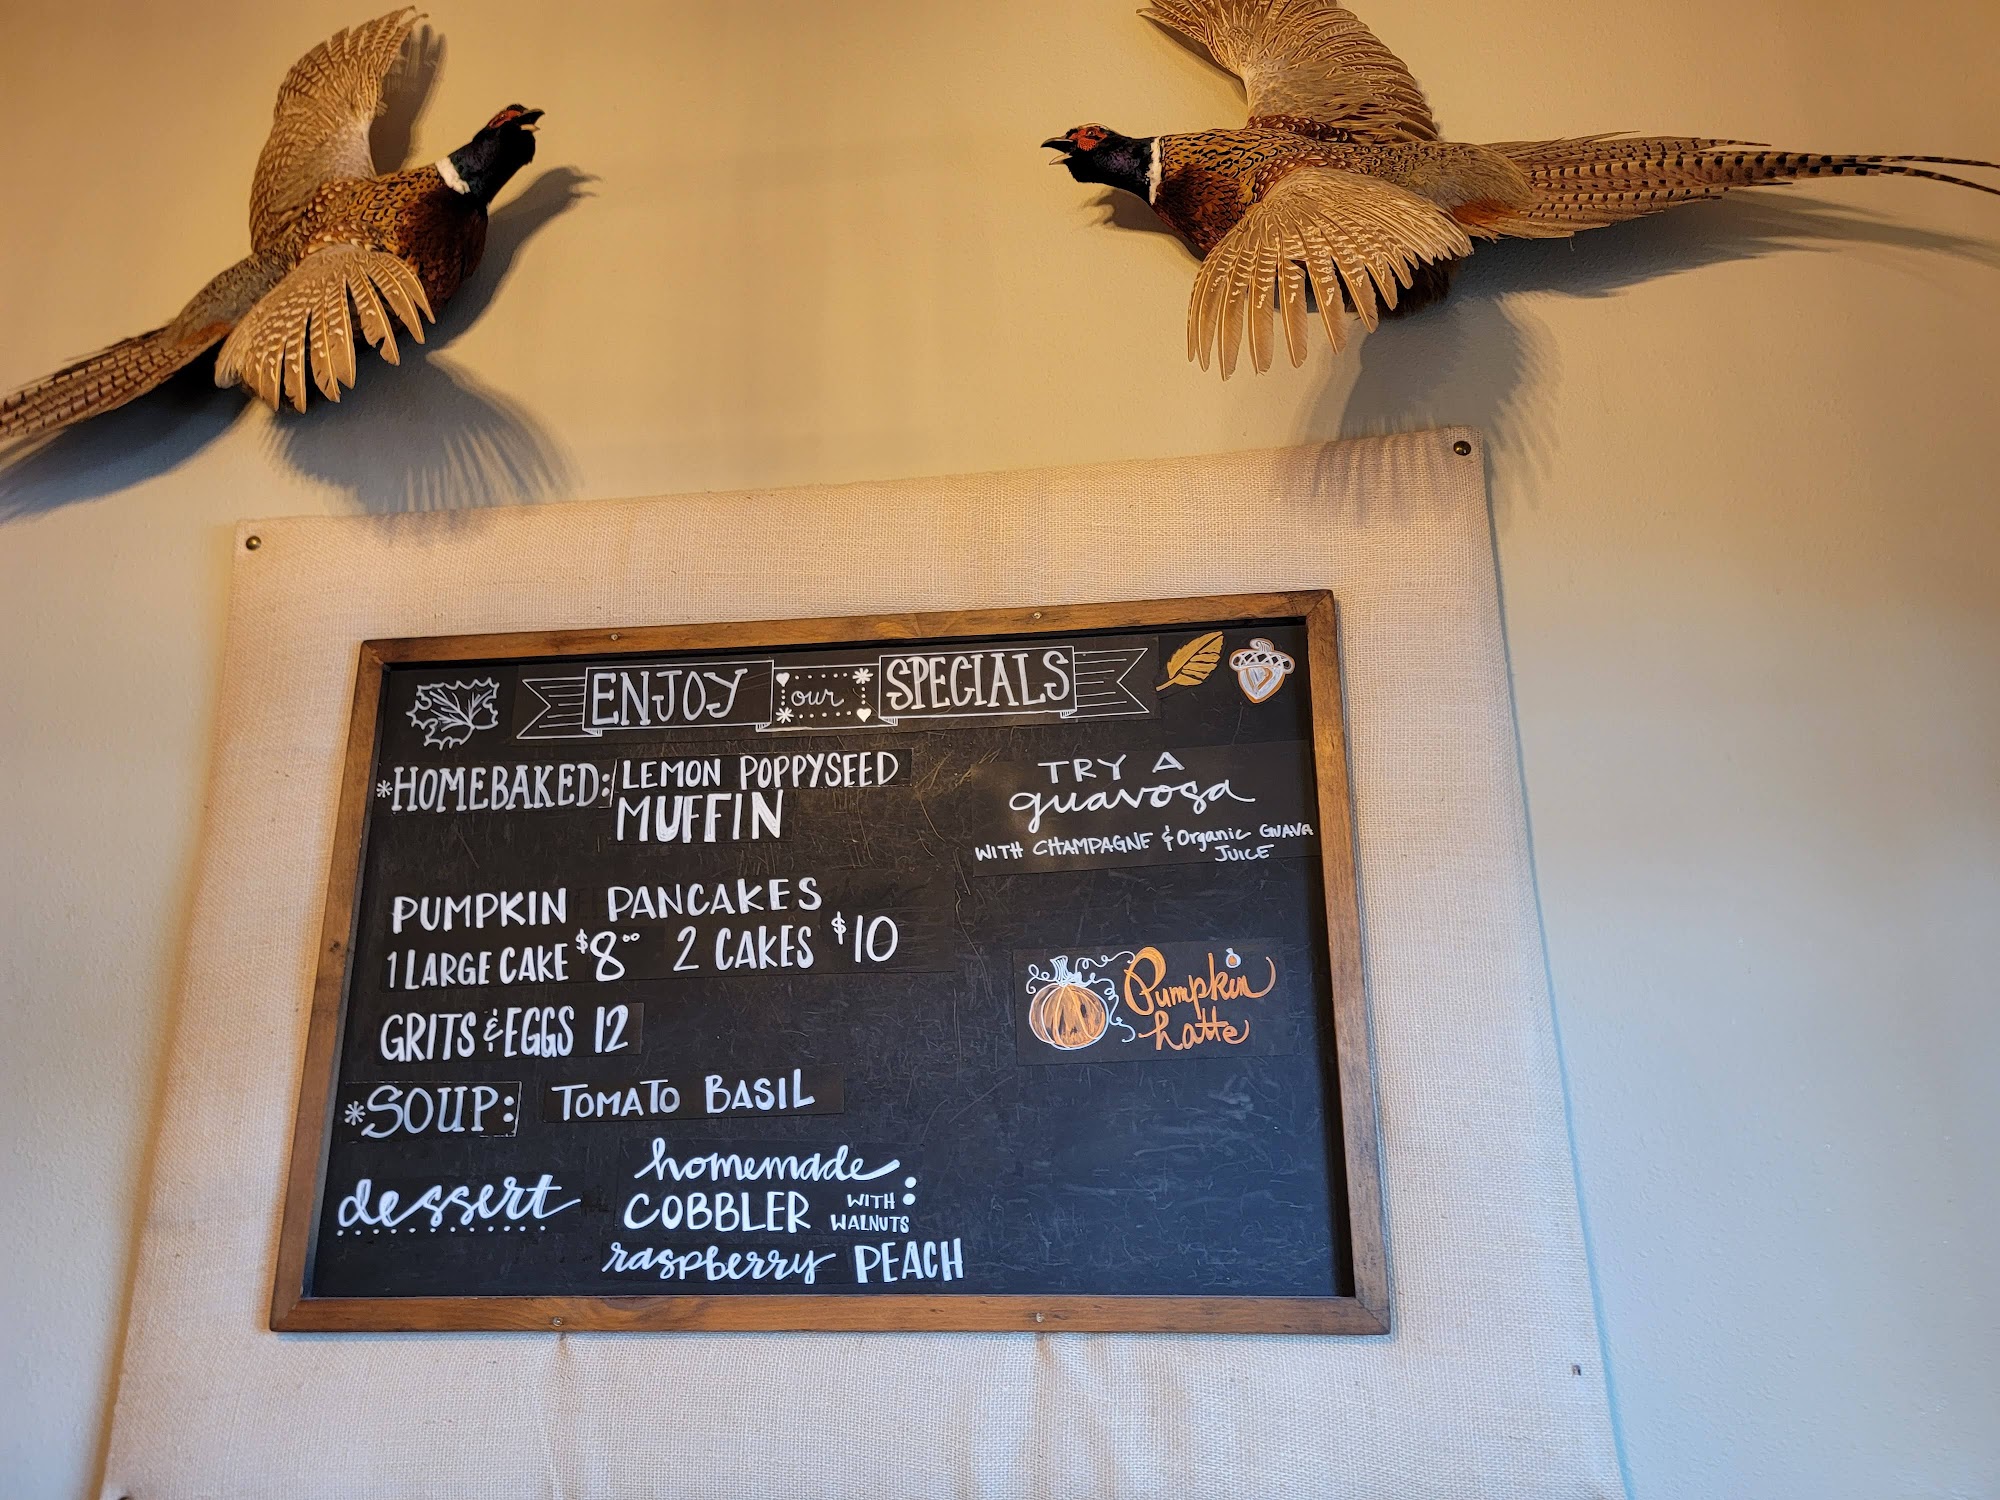 ENJOY our SPECIALS
*HOMEBAKED: LEMON POPPYSEED
MUFFIN
PUMPKIN PANCAKES
1 LARGE CAKE $8.00 2 CAKES $10
GRITS & EGGS 12
*SOUP: TOMATO BASIL
dessert
homemade :
COBBLER WITH
WALNUTS
raspberry PEACH
TRY A
guavosa
WITH CHAMPAGNE & Organic GUAVA
JUICE
Pumpkin
Latte